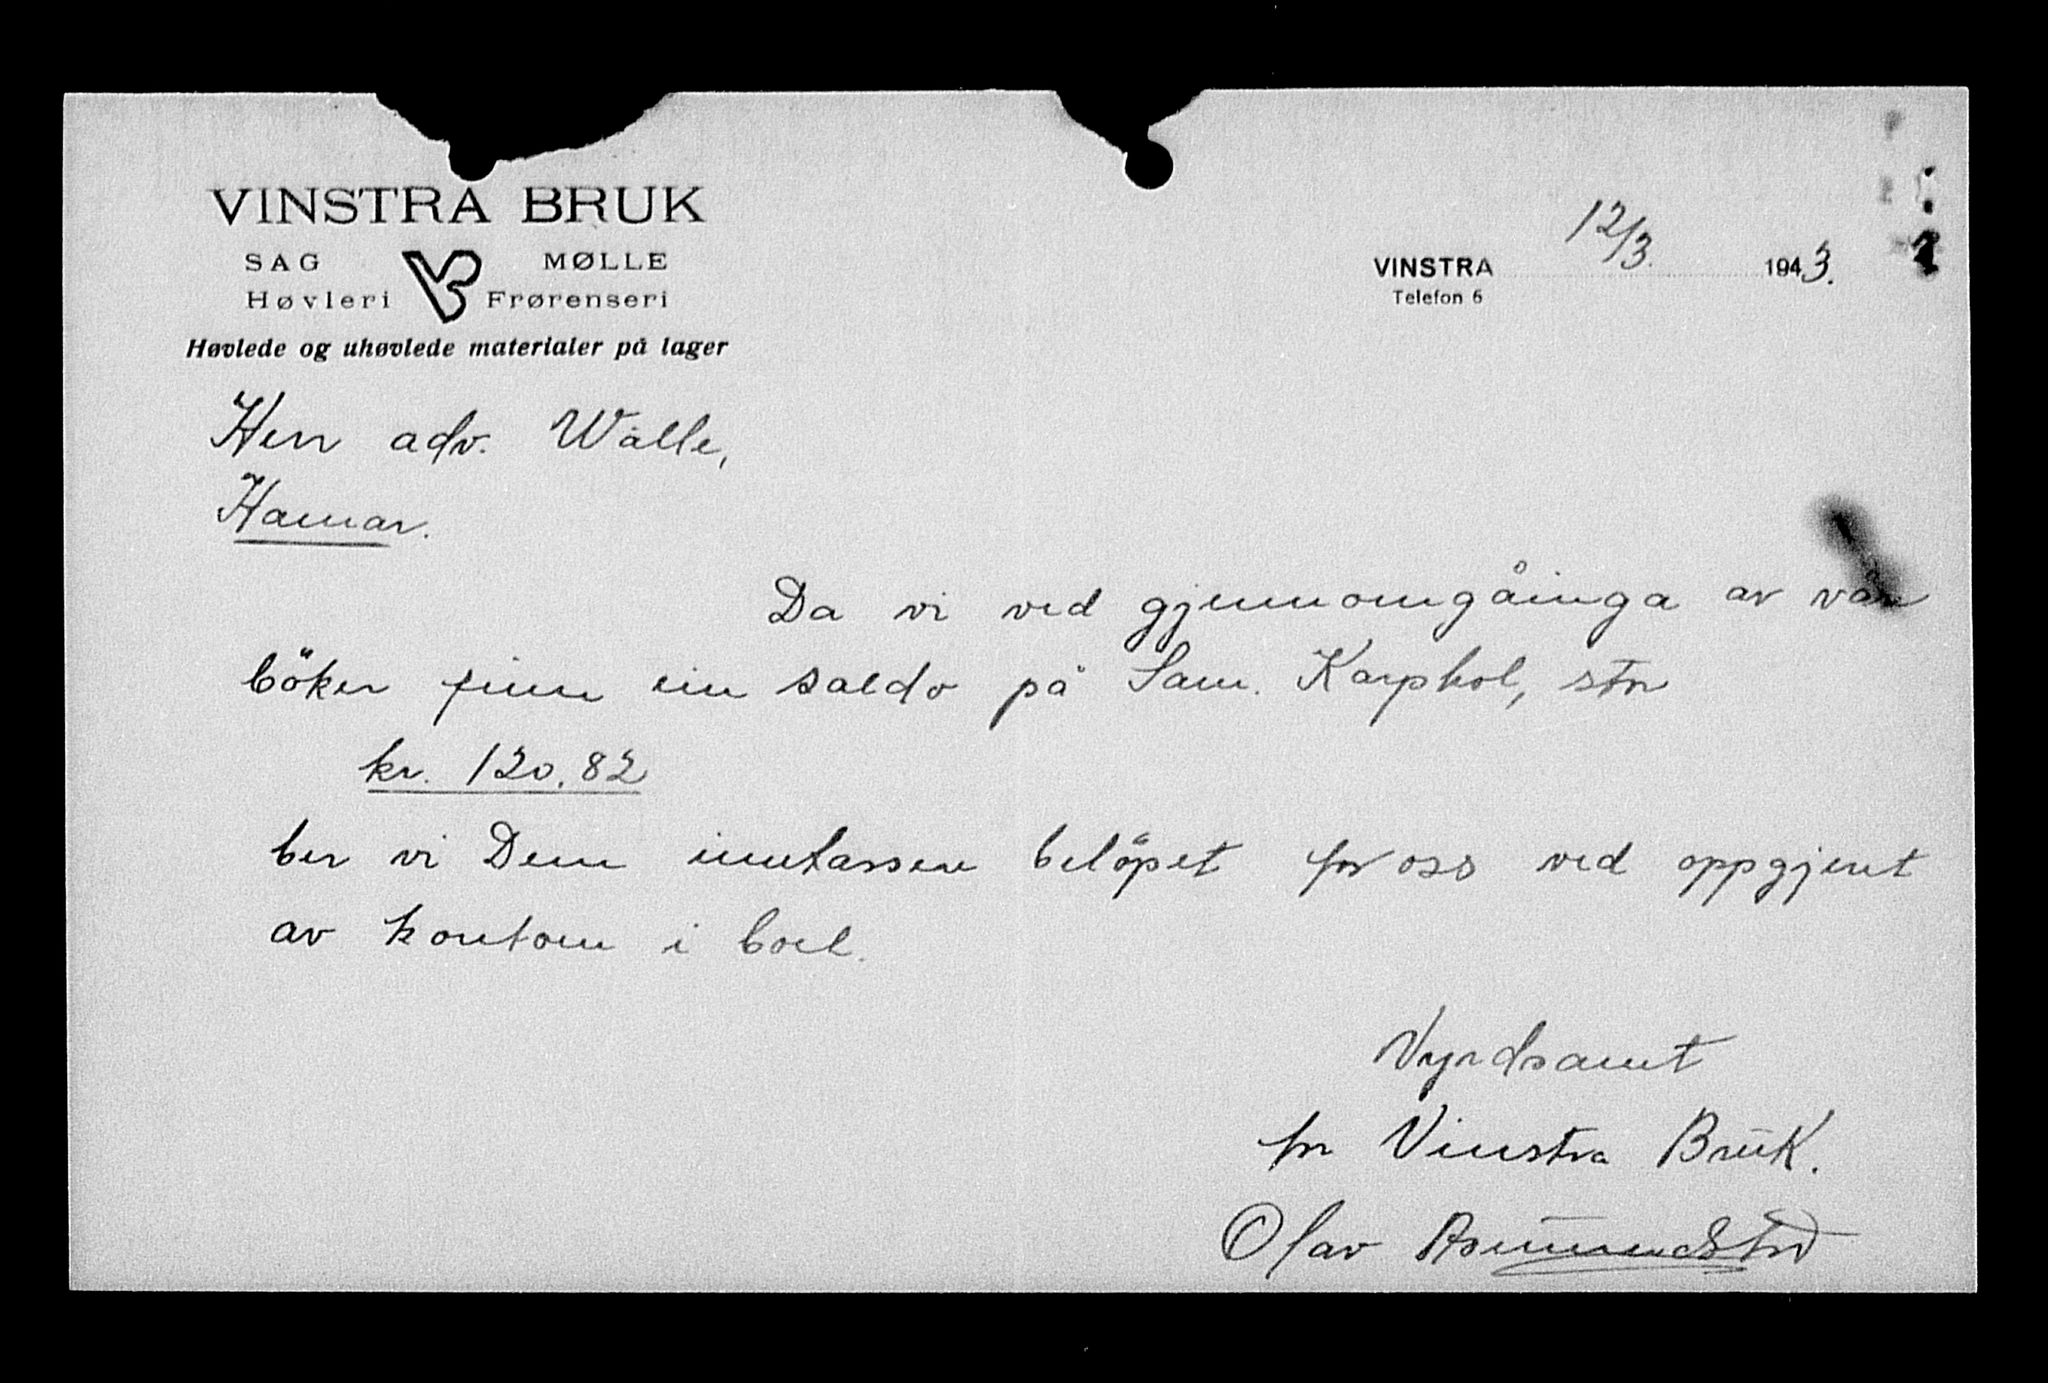 VINSTRA BRUK
SAG MØLLE
Høvleri Frørenseri
Høvlede og uhøvlede materialer på lager
VINSTRA 12/3. 1943.
Telefon 6
Herr adv. Walle,
Hamar.
Da vi ved gjennomgåinga av våre
böker finn ein saldo på Sam. Karphol, stor
kr. 120.82
ber vi Dem innkassere belöpet for oss ved oppgjeret
av kontoen i boet.
Vyrdsamt
for Vinstra Bruk.
Olav